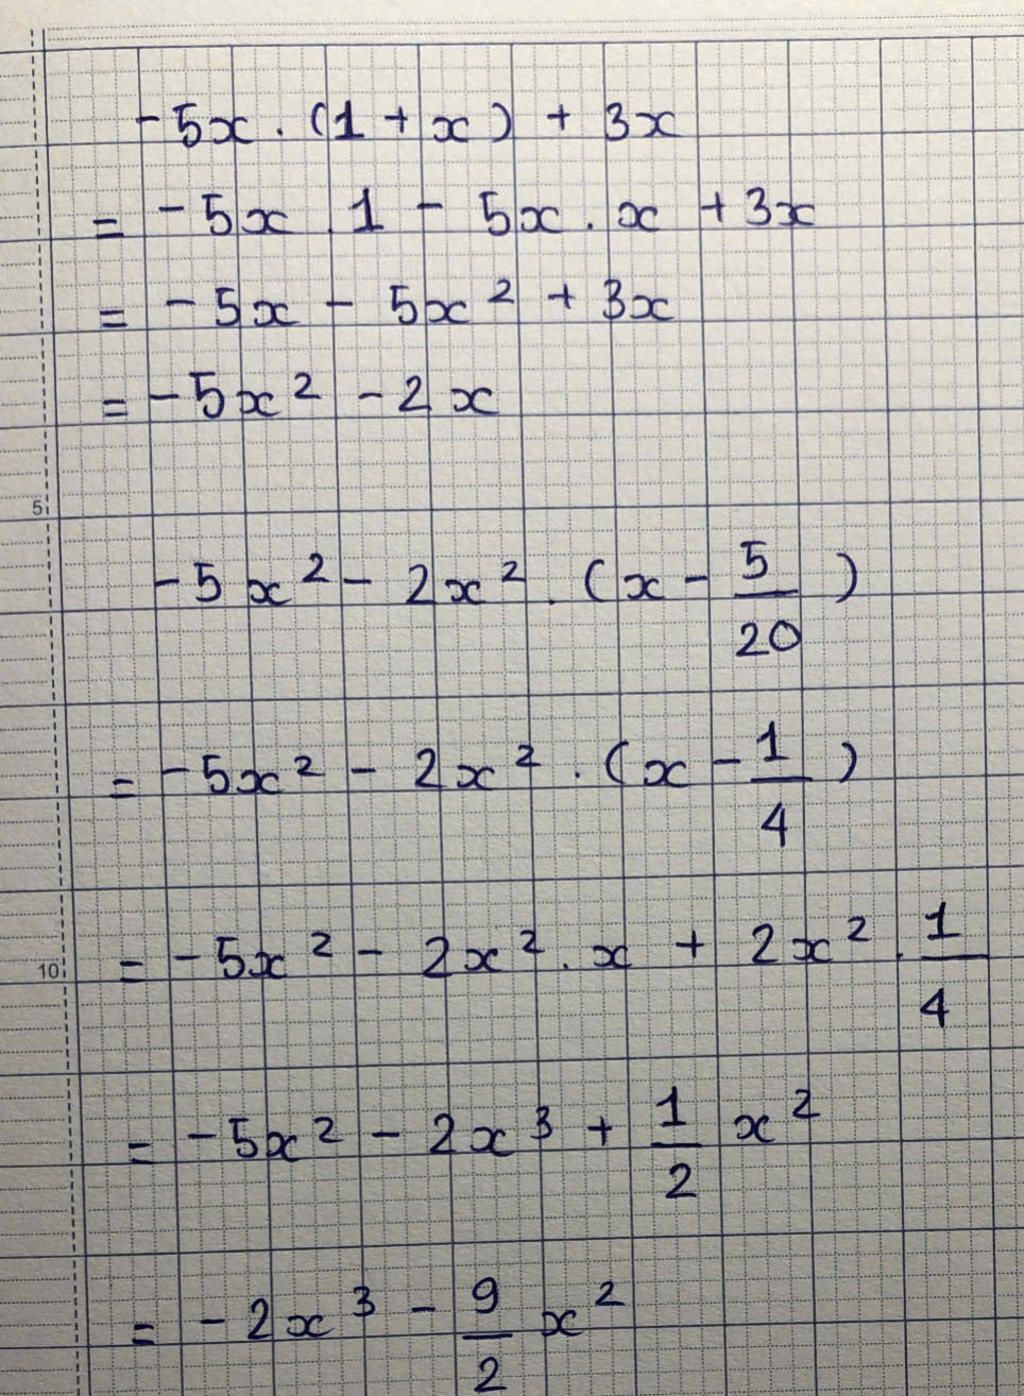 -5x . (1 + x) + 3x
= -5x . 1 - 5x . x + 3x
= -5x - 5x² + 3x
= -5x² - 2x
5
-5x² - 2x² . (x - 5/20)
= -5x² - 2x² . (x - 1/4)
10 = -5x² - 2x² . x + 2x² . 1/4
= -5x² - 2x³ + 1/2 x²
= -2x³ - 9/2 x²